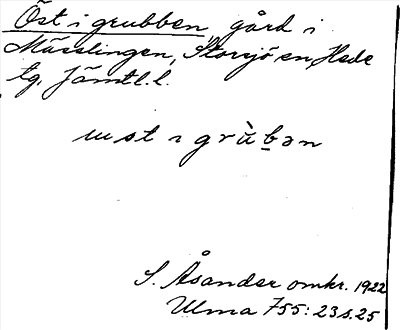 Öst i grubben, gård i
Mässlingen, Storsjö sn, Hede
tg, Jämtl. l.
ust ı grùb̲ən
S. Åsander omkr. 1922
Ulma 755: 23 s. 25